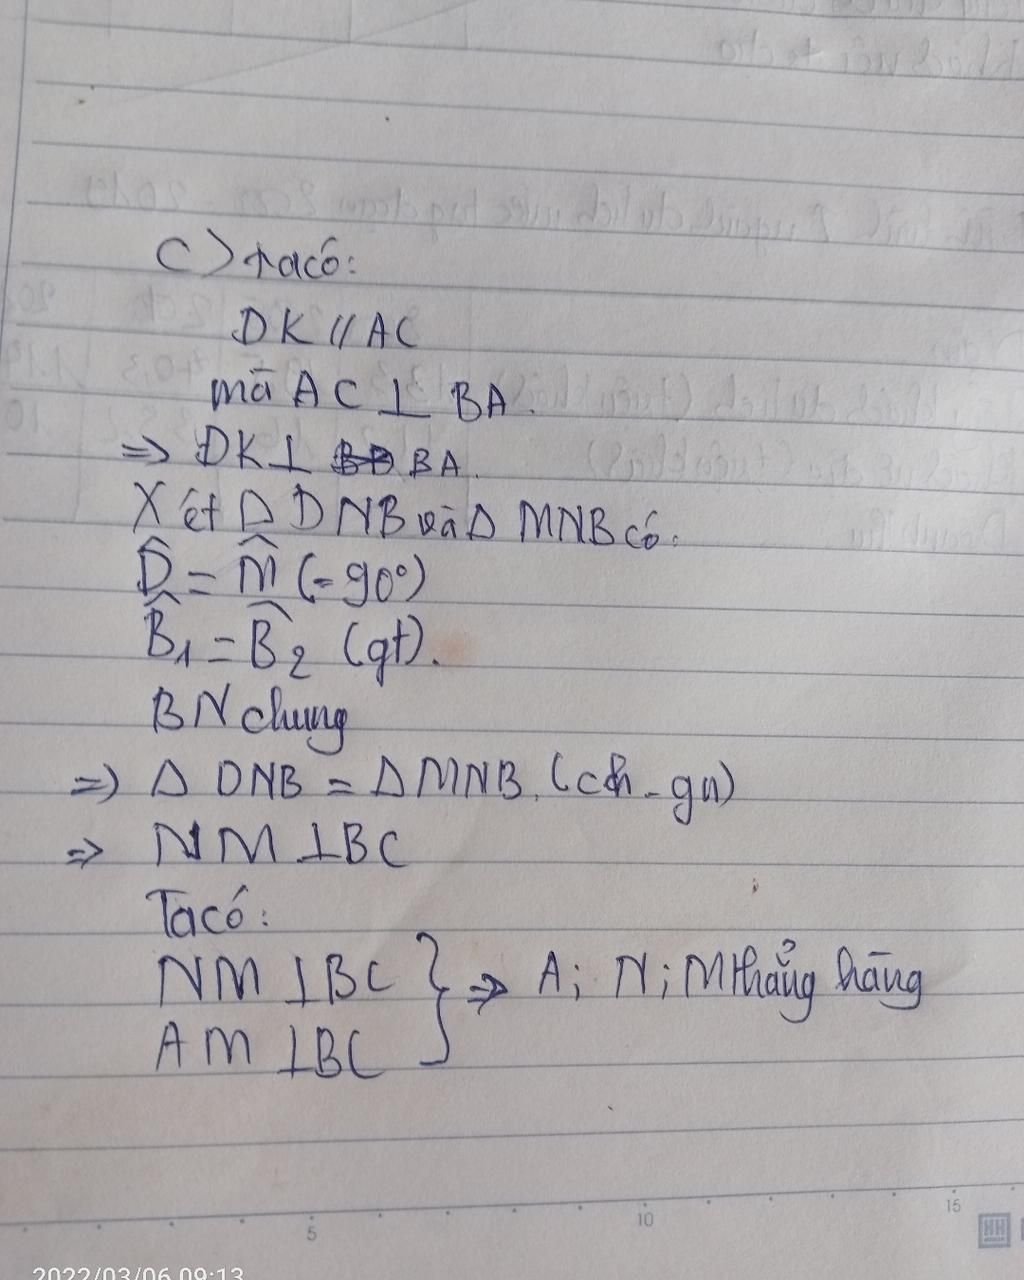 c) ta có:
DK // AC
mà AC ⊥ BA.
=> DK ⊥ BA.
Xét Δ DNB và Δ MNB có:
D̂ = M̂ (= 90°)
B̂₁ = B̂₂ (gt).
BN chung
=> Δ DNB = Δ MNB. (ch - gn)
=> NM ⊥ BC
Ta có:
NM ⊥ BC } => A; N; M thẳng hàng
AM ⊥ BC
5 10 15
2022/03/06 09:13